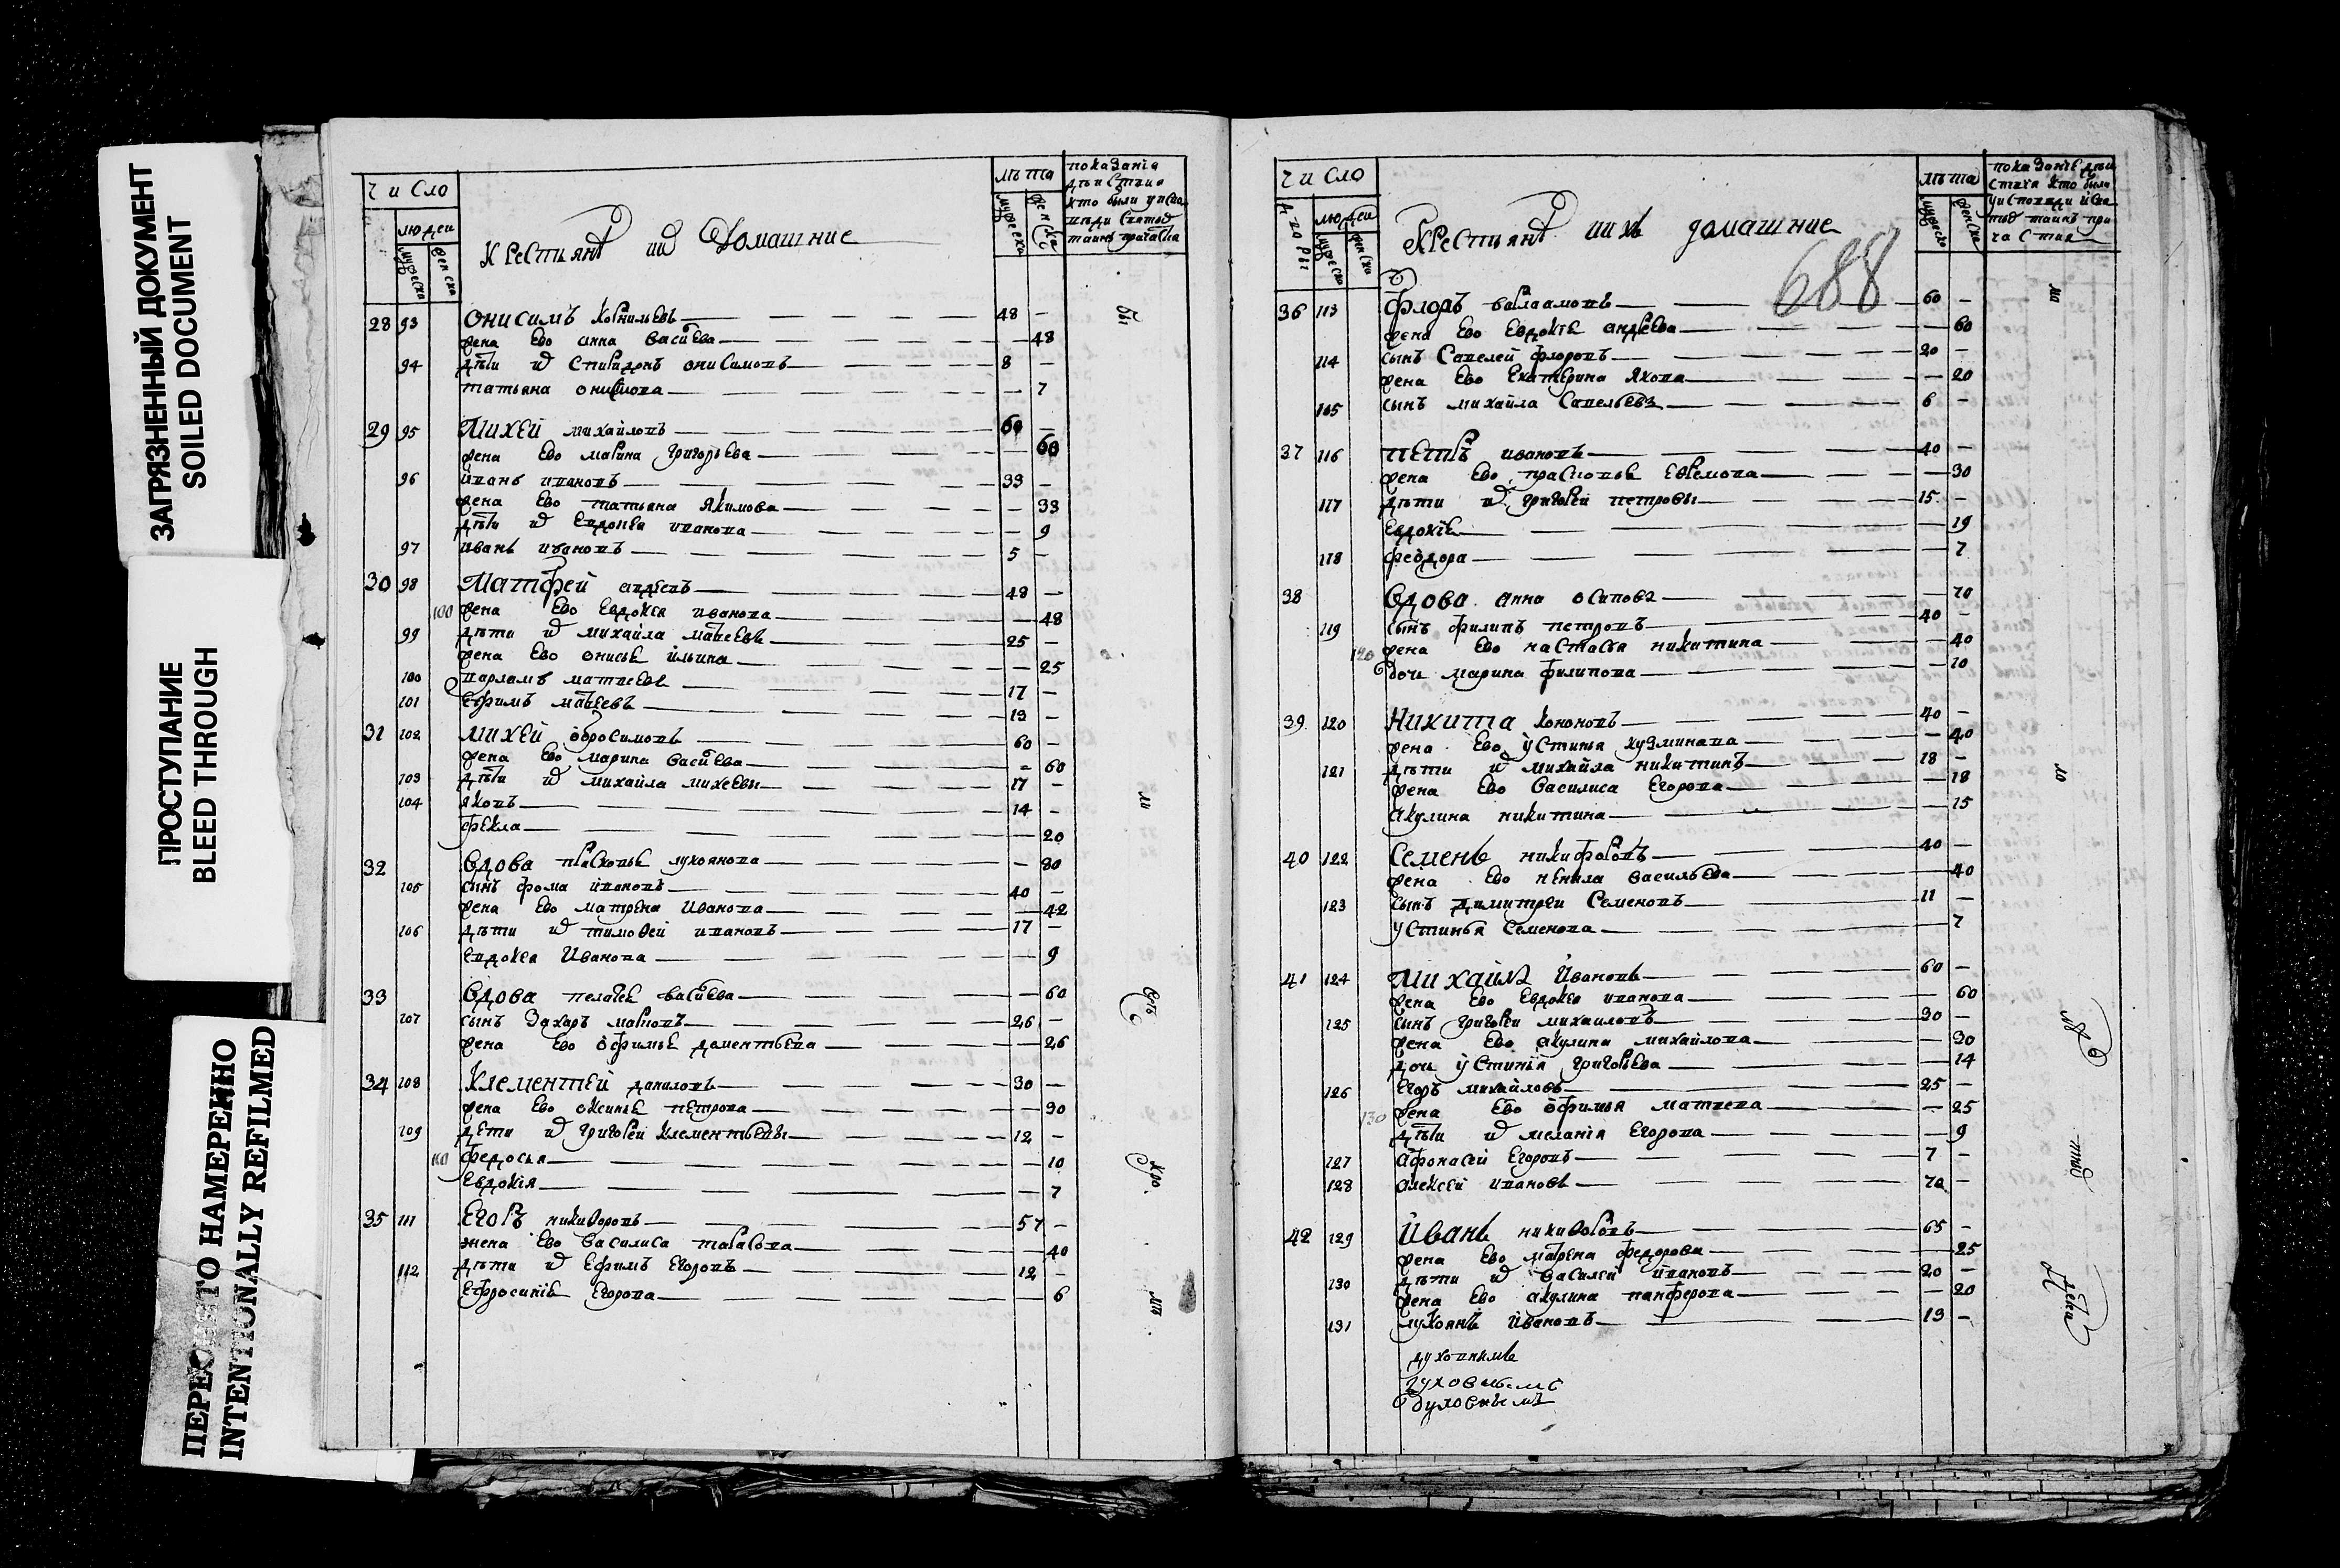 ЗАГРЯЗНЕННЫЙ ДОКУМЕНТ
SOILED DOCUMENT
ПРОСТУПАНИЕ
BLEED THROUGH
ПЕРЕСНЯТО НАМЕРЕННО
INTENTIONALLY REFILMED
число
людей
мужеска
женска
крестьянѣ их домашние
лѣта
мужеска
женска
показания
кто были у испо
28 93 Онисимъ Корнильевъ 48 —
жена Ево анна васильева — 48
94 дѣти их спиридонъ онисимовъ 8 —
татьяна онисимова — 7
29 95 Михей михайловъ 60 —
жена Ево марина григорьева — 60
96 йванъ ивановъ 33 —
жена Ево татьяна Якимова — 33
дѣти их Евдокея иванова — 9
97 иванъ ивановъ 5 —
30 98 Матфей андреевъ 48 —
100 жена Ево Евдокея иванова — 48
99 дѣти их михайла матвеевъ 25 —
жена Ево онисье ильина — 25
100 варламъ матвеевъ 17 —
101 Ефимъ матвеевъ 13 —
31 102 Михей обросимовъ 60 —
жена Ево марина васильева — 60
103 дѣти их михайла михеевы 17 —
104 яковъ 14 —
фекла — 20
32 Вдова прасковье лукоянова — 80
105 сынъ фома ивановъ 40 —
жена Ево матрена Иванова — 42
106 дѣти их тимоѳей ивановъ 17 —
Евдокея Иванова — 9
33 Вдова пелагее васильева — 60
107 сынъ Захаръ марковъ 26 —
жена Ево офимье дементьева — 26
34 108 Клементей даниловъ 30 —
жена Ево оксинье петрова — 30
109 дети их григорей клементьевы 12 —
110 федосья — 10
Евдокия — 7
35 111 Егоръ никиѳоровъ 57 —
жена Ево василиса тарасова — 40
112 дѣти их Ефимъ Егоровъ 12 —
Ефросиние Егорова — 6
бы
ли
число
дворы
людей
мужеска
женска
крестьянѣ ихъ домашние
лѣта
мужеска
женска
688
36 113 Флоръ варламовъ 60 —
жена Ево Евдокие андреева — 60
114 сынъ Савелей флоровъ 20 —
жена Ево Екатерина Якова — 20
115 сынъ михайла Савельевъ 6 —
37 116 Петръ ивановъ 40 —
жена Ево прасковье Ефремова — 30
117 дѣти их григорей петровы 15 —
Евдокие — 19
118 феодора — 7
38 Вдова анна осипова — 70
119 сынъ филипъ петровъ 40 —
120 жена Ево настасья никитина — 40
дочь марина филипова — 10
39 120 Никита кононовъ 40 —
жена Ево устинья кузминава — 40
121 дѣти их михайла никитинъ 18 —
жена Ево василиса Егорова — 18
акулина никитина — 15
40 122 Семенъ никифоровъ 40 —
жена Ево ненила васильева — 40
123 сынъ димитрей Семеновъ 11 —
устинья семенова — 7
41 124 Михайла Ивановъ 60 —
жена Ево Евдокея иванова — 60
125 сынъ григорей михаиловъ 30 —
жена Ево акулина михайлова — 30
дочь устиния григорьева — 14
126 Егоръ михайловъ 25 —
130 жена Ево офимья матвева — 25
дѣти их мелания Егорова — 9
127 афонасей Егоровъ 7 —
128 алексей ивановъ 70 —
42 129 Иванъ никиѳоровъ 65 —
жена Ево матрена федорова — 25
130 дѣти их василей ивановъ 20 —
жена Ево акулина панферова — 20
131 лукоянъ ивановъ 13 —
духовнымъ
духовнымъ
духовнымъ